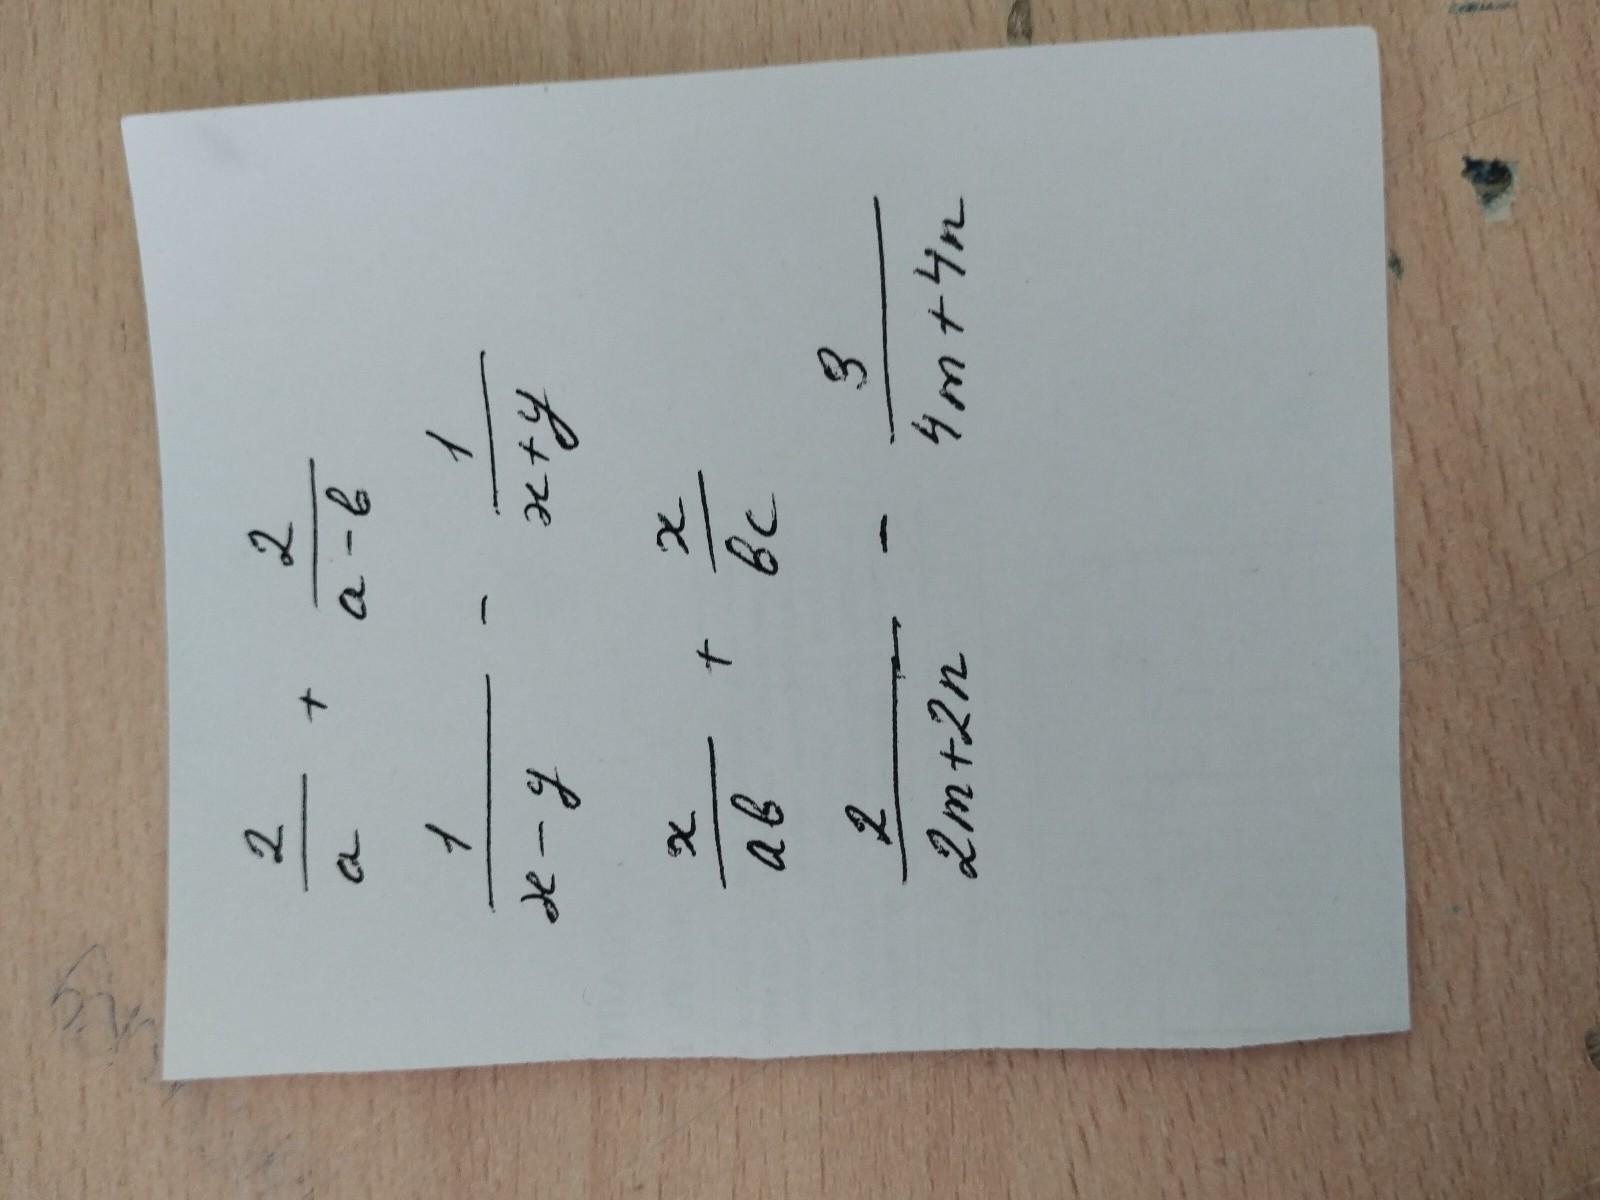 2/a + 2/(a-b)
1/(x-y) - 1/(x+y)
x/(ab) + x/(bc)
2/(2m+2n) - 3/(4m+4n)